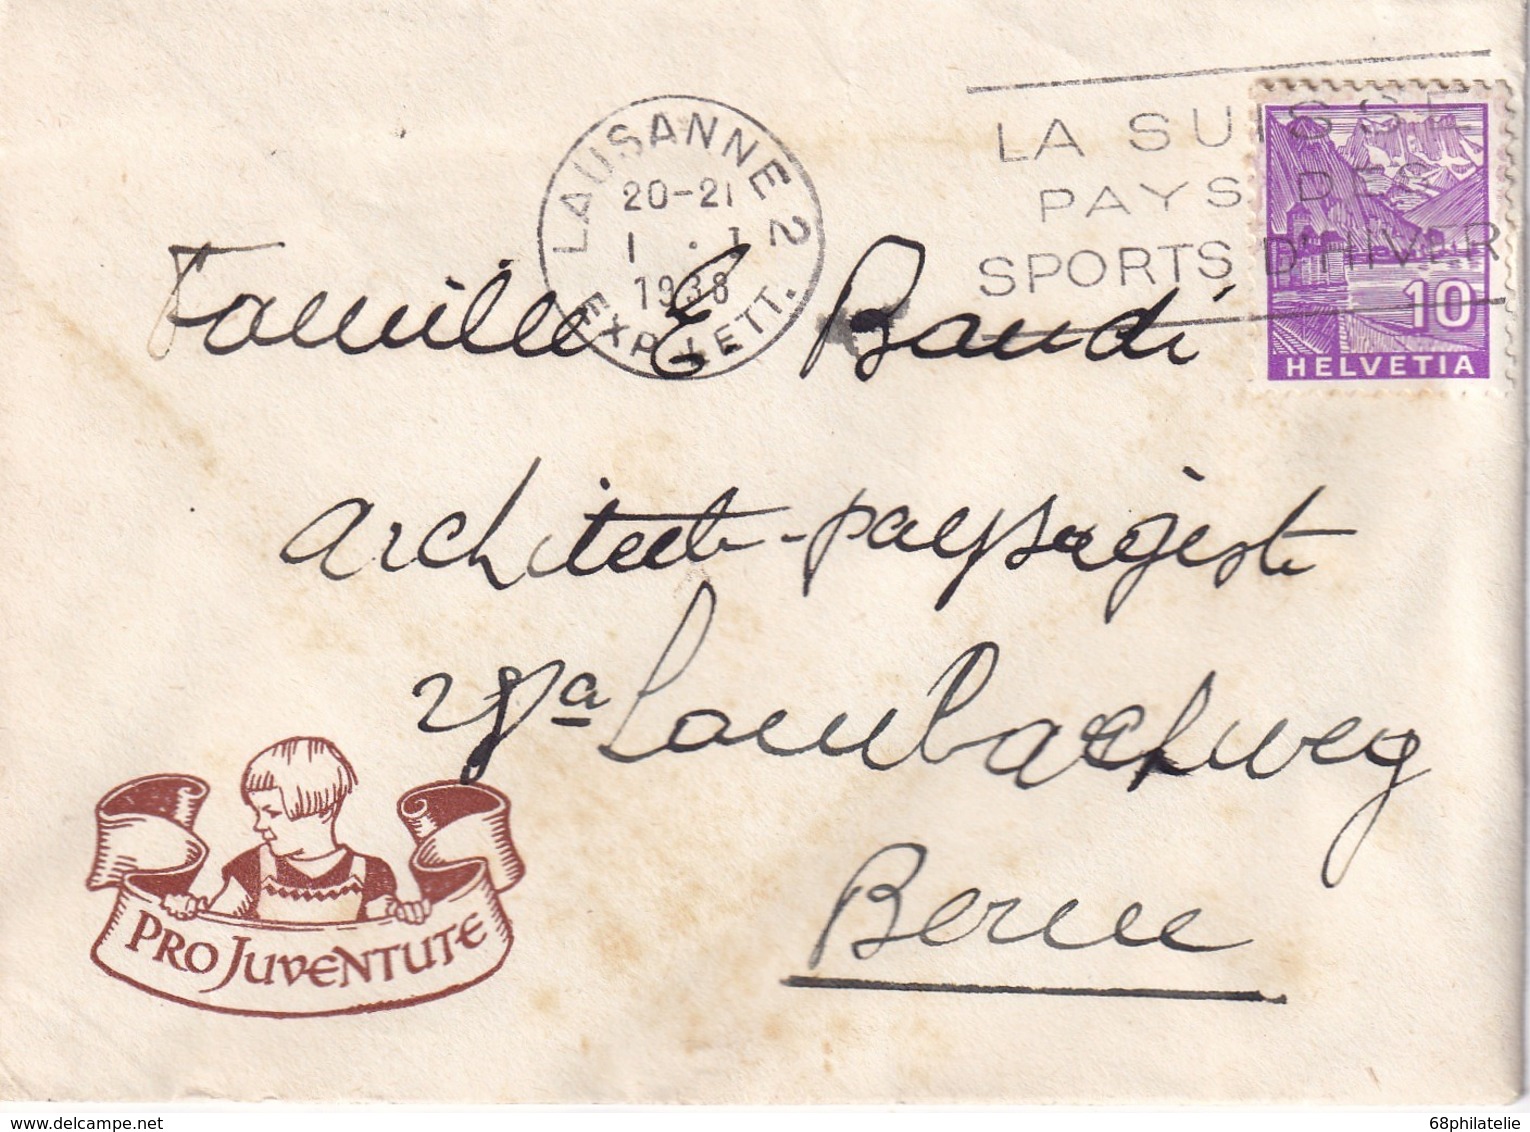 LAUSANNE 2
20-21
1 . I
1938
EXP. LETT.
LA SUISSE
PAYS DES
SPORTS D'HIVER
10
HELVETIA
Famille E Baudi
architecte-paysagiste
Lombachweg
Berne
PRO JUVENTUTE
68philatelie